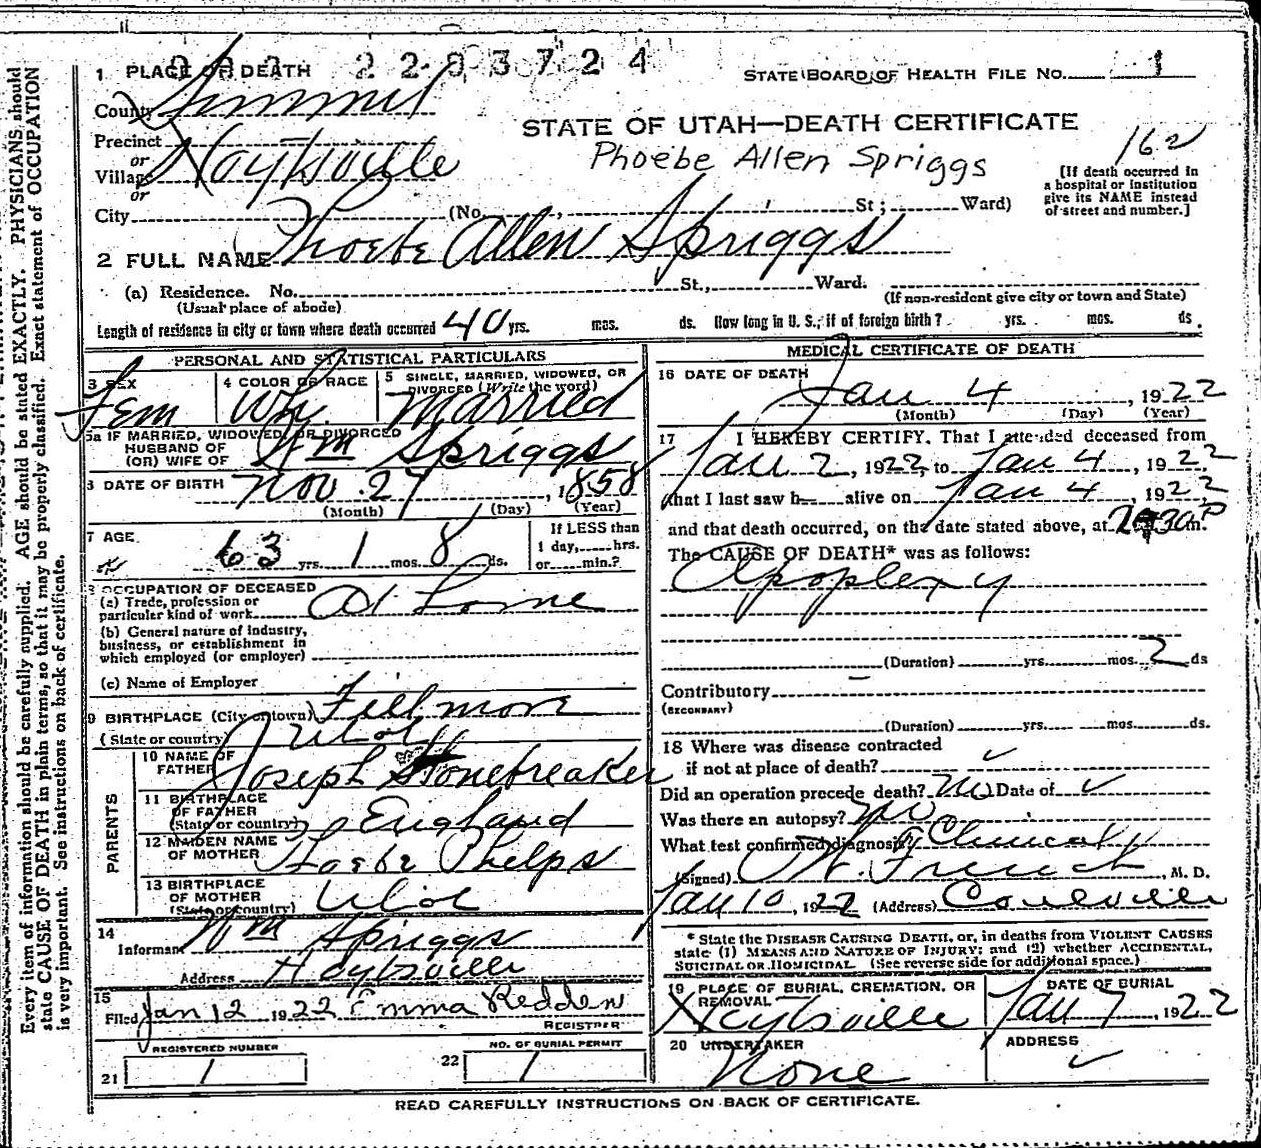 1 PLACE OF DEATH 2 2 8 3 7 2 4 STATE BOARD OF HEALTH FILE NO. 1
County Summit
STATE OF UTAH—DEATH CERTIFICATE
Precinct
or
Village Hoytsville
or
Phoebe Allen Spriggs
162
[If death occurred in
a hospital or institution
give its NAME instead
of street and number.]
City (No. , St; Ward)
2 FULL NAME Phoebe Allen Spriggs
(a) Residence. No. St., Ward.
(Usual place of abode) (If non-resident give city or town and State)
Length of residence in city or town where death occurred 40 yrs. mos. ds. How long in U. S., if of foreign birth? yrs. mos. ds.
PERSONAL AND STATISTICAL PARTICULARS
3 SEX
Fem
4 COLOR OR RACE
Wh.
5 SINGLE, MARRIED, WIDOWED, OR
DIVORCED (Write the word)
Married
5a IF MARRIED, WIDOWED, OR DIVORCED
HUSBAND OF
(OR) WIFE OF Wm Spriggs
6 DATE OF BIRTH Nov. 27, 1858
(Month) (Day) (Year)
7 AGE
63 yrs. 1 mos. 8 ds.
If LESS than
1 day, hrs.
or min.?
8 OCCUPATION OF DECEASED
(a) Trade, profession or
particular kind of work At Home
(b) General nature of industry,
business, or establishment in
which employed (or employer)
(c) Name of Employer
9 BIRTHPLACE (City or town) Fillmore
(State or country) Utah
PARENTS
10 NAME OF
FATHER Joseph Stonebreaker
11 BIRTHPLACE
OF FATHER
(State or country) England
12 MAIDEN NAME
OF MOTHER Phoebe Phelps
13 BIRTHPLACE
OF MOTHER
(State or country) Utah
14
Informant Wm Spriggs
Address Hoytsville
15
Filed Jan 12, 1922 Emma Redden
REGISTRER
REGISTERED NUMBER
21 1
NO. OF BURIAL PERMIT
22 1
MEDICAL CERTIFICATE OF DEATH
16 DATE OF DEATH
Jan 4, 1922
(Month) (Day) (Year)
17 I HEREBY CERTIFY, That I attended deceased from
Jan 2, 1922, to Jan 4, 1922,
that I last saw h alive on Jan 4, 1922,
and that death occurred, on the date stated above, at m.
The CAUSE OF DEATH* was as follows:
Apoplexy
(Duration) yrs. mos. 2 ds
Contributory
(SECONDARY)
(Duration) yrs. mos. ds.
18 Where was disease contracted
if not at place of death?
Did an operation precede death? No Date of
Was there an autopsy? No
What test confirmed diagnosis? Clinical
(Signed) French, M. D.
Jan 10, 1922 (Address) Coalville
* State the DISEASE CAUSING DEATH, or, in deaths from VIOLENT CAUSES
state (1) MEANS AND NATURE OF INJURY; and (2) whether ACCIDENTAL,
SUICIDAL OR HOMICIDAL. (See reverse side for additional space.)
19 PLACE OF BURIAL, CREMATION, OR
REMOVAL
Hoytsville
DATE OF BURIAL
Jan 7, 1922
20 UNDERTAKER
None
ADDRESS
READ CAREFULLY INSTRUCTIONS ON BACK OF CERTIFICATE.
Every item of information should be carefully supplied. AGE should be stated EXACTLY. PHYSICIANS should
state CAUSE OF DEATH in plain terms, so that it may be properly classified. Exact statement of OCCUPATION
is very important. See instructions on back of certificate.